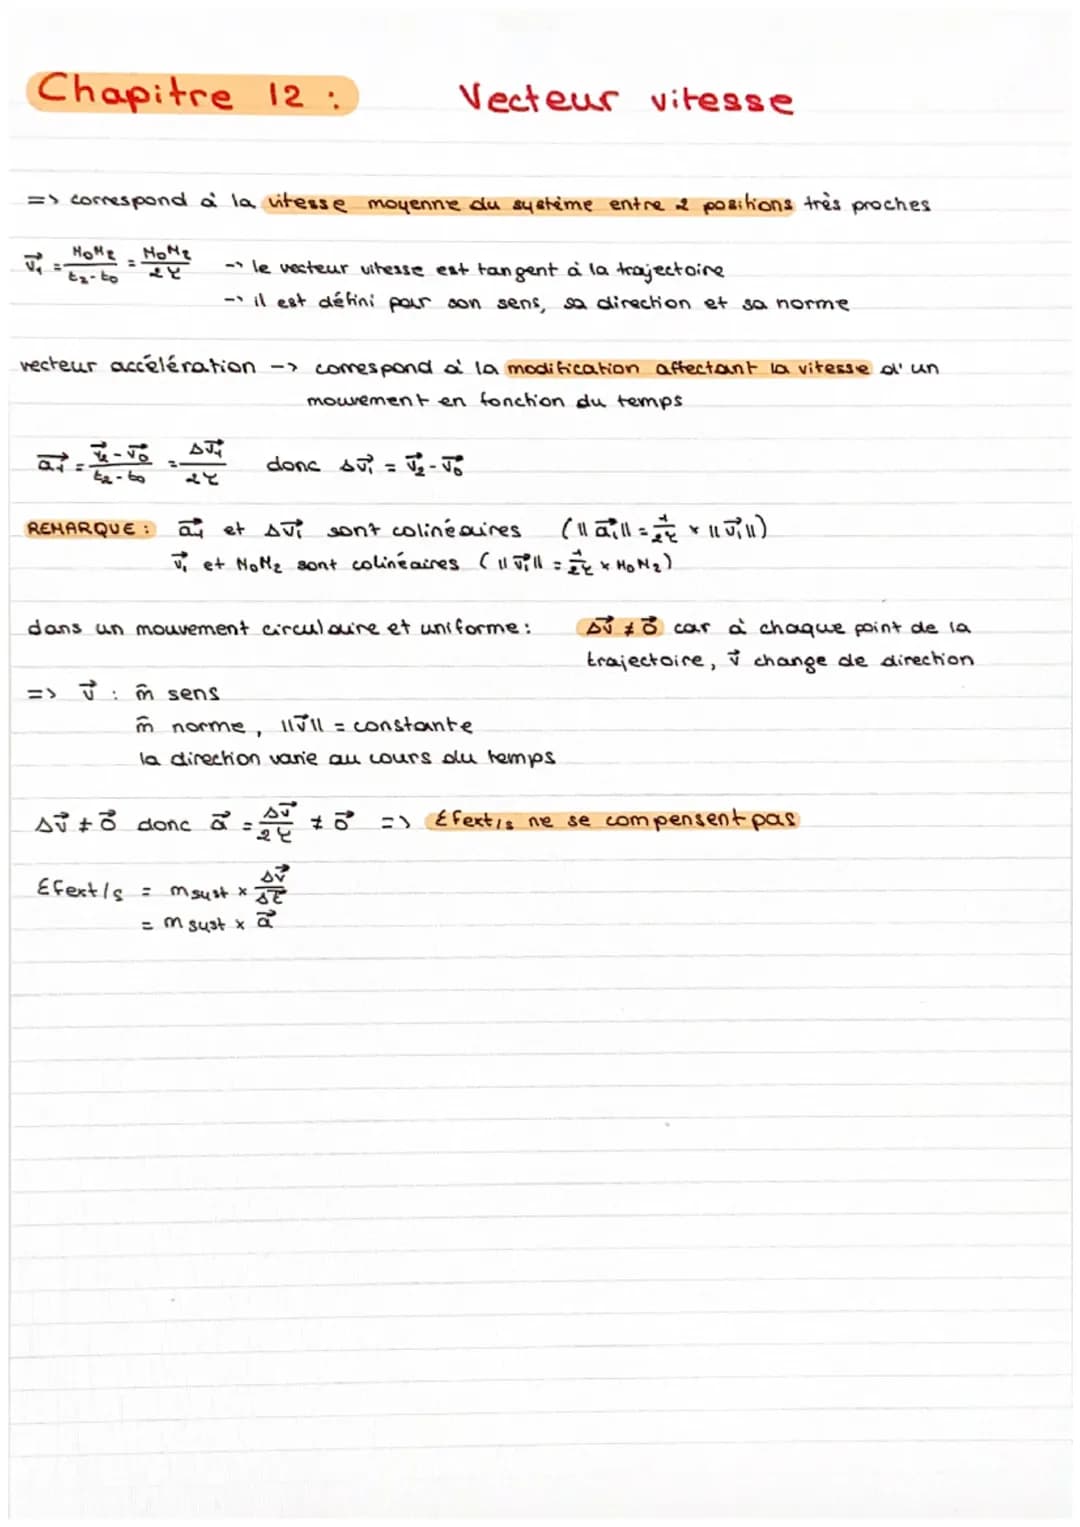 Chapitre 12 : Vecteur vitesse
=> correspond à la vitesse moyenne du système entre 2 positions très proches
v₁⃗ = M₀M₂/(t₂-t₀) = M₀M₂/2τ -> le vecteur vitesse est tangent à la trajectoire
-> il est défini par son sens, sa direction et sa norme
vecteur accélération -> correspond à la modification affectant la vitesse d'un
mouvement en fonction du temps
a₁⃗ = (v₂⃗ - v₀⃗)/(t₂-t₀) = Δv₁⃗/2τ donc Δv₁⃗ = v₂⃗ - v₀⃗
REMARQUE : a₁⃗ et Δv₁⃗ sont colinéaires (||a₁⃗|| = 1/2τ × ||v₁⃗||)
v₁⃗ et M₀M₂ sont colinéaires (||v₁⃗|| = 1/2τ × M₀M₂)
dans un mouvement circulaire et uniforme : Δv⃗ ≠ 0⃗ car à chaque point de la
trajectoire, v⃗ change de direction
=> v⃗ : m̂ sens
m̂ norme, ||v⃗|| = constante
la direction varie au cours du temps
Δv⃗ ≠ 0⃗ donc a⃗ = Δv⃗/2τ ≠ 0⃗ => Σfext/s ne se compensent pas
Σfext/s = m syst × Δv⃗/Δt
= m syst × a⃗